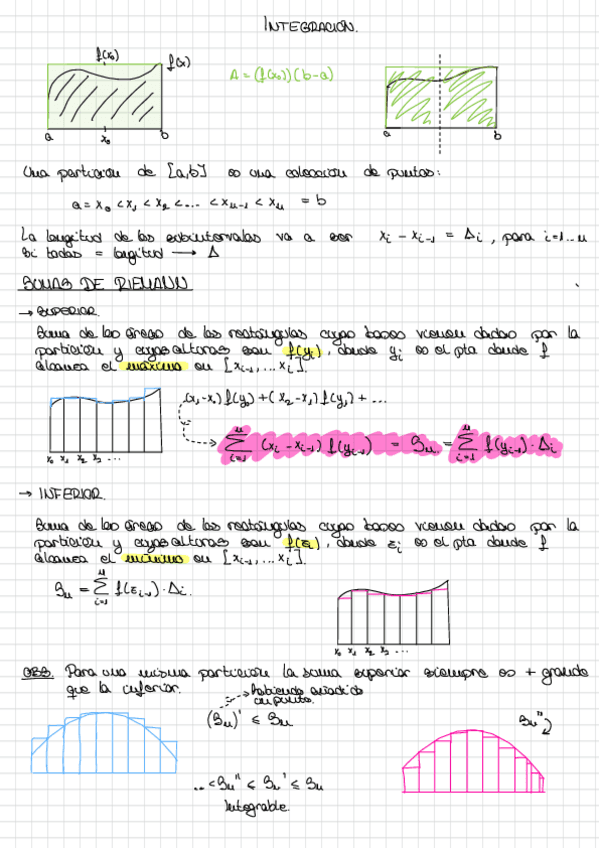 INTEGRACIÓN.
f(x₀)
f(x)
A = (f(x₀))(b-a)
a x₀ b
a b
Una partición de [a,b] es una colección de puntos:
a = x₀ < x₁ < x₂ < ... < xₙ₋₁ < xₙ = b
La longitud de los subintervalos va a ser xᵢ - xᵢ₋₁ = Δᵢ, para i=1...n
Si todas = longitud → Δ
SUMAS DE RIEMANN
→ SUPERIOR.
Suma de las áreas de los rectángulos cuyas bases vienen dadas por la
partición y cuyas alturas son f(yᵢ), donde yᵢ es el pto donde f
alcanza el máximo en [xᵢ₋₁, ... xᵢ].
(x₁-x₀) f(y₀) + (x₂-x₁) f(y₁) + ...
x₀ x₁ x₂ x₃ ...
∑ⁿᵢ₌₁ (xᵢ - xᵢ₋₁) f(yᵢ₋₁) = Sₙ = ∑ⁿᵢ₌₁ f(yᵢ₋₁) · Δᵢ
→ INFERIOR.
Suma de las áreas de los rectángulos cuyas bases vienen dadas por la
partición y cuyas alturas son f(zᵢ), donde zᵢ es el pto donde f
alcanza el mínimo en [xᵢ₋₁, ... xᵢ].
Sₙ = ∑ⁿᵢ₌₁ f(zᵢ₋₁) · Δᵢ.
x₀ x₁ x₂ x₃ ...
OBS. Para una misma partición la suma superior siempre es + grande
que la inferior.
Habiendo añadido
un punto.
(Sₙ)' ≤ Sₙ
Sₙ"
... < Sₙ" ≤ Sₙ' ≤ Sₙ
Integrable.